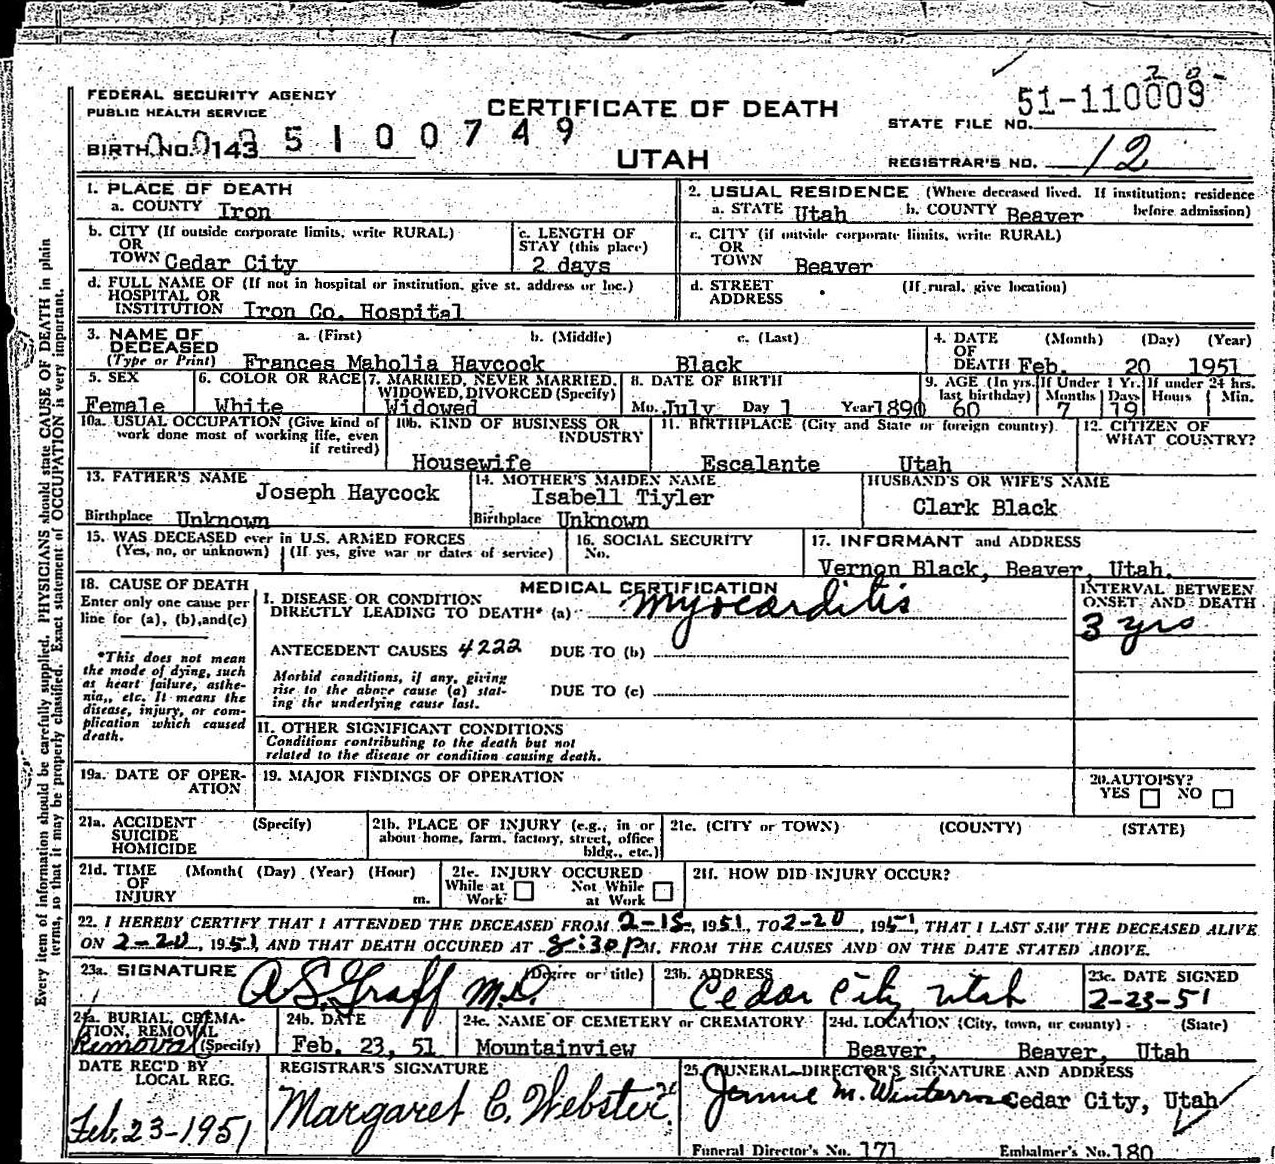 FEDERAL SECURITY AGENCY
PUBLIC HEALTH SERVICE
CERTIFICATE OF DEATH
UTAH
BIRTH NO. 0143 5100749
STATE FILE NO. 51-110009
20-
REGISTRAR'S NO. 12
Every item of information should be carefully supplied. PHYSICIANS should state CAUSE OF DEATH in plain
terms, so that it may be properly classified. Exact statement of OCCUPATION is very important.
1. PLACE OF DEATH
a. COUNTY Iron
2. USUAL RESIDENCE (Where deceased lived. If institution: residence
before admission)
a. STATE Utah b. COUNTY Beaver
b. CITY (If outside corporate limits, write RURAL)
OR
TOWN Cedar City
c. LENGTH OF
STAY (this place)
2 days
c. CITY (if outside corporate limits, write RURAL)
OR
TOWN Beaver
d. FULL NAME OF (If not in hospital or institution, give st. address or loc.)
HOSPITAL OR
INSTITUTION Iron Co. Hospital
d. STREET
ADDRESS
(If rural, give location)
3. NAME OF
DECEASED
(Type or Print)
a. (First) b. (Middle) c. (Last)
Frances Maholia Haycock Black
4. DATE
OF
DEATH
(Month) (Day) (Year)
Feb. 20 1951
5. SEX
Female
6. COLOR OR RACE
White
7. MARRIED, NEVER MARRIED,
WIDOWED, DIVORCED (Specify)
Widowed
8. DATE OF BIRTH
Mo. July Day 1 Year 1890
9. AGE (In yrs.
last birthday)
60
If Under 1 Yr.
Months Days
7 19
If under 24 hrs.
Hours Min.
10a. USUAL OCCUPATION (Give kind of
work done most of working life, even
if retired)
10b. KIND OF BUSINESS OR
INDUSTRY
Housewife
11. BIRTHPLACE (City and State or foreign country)
Escalante Utah
12. CITIZEN OF
WHAT COUNTRY?
13. FATHER'S NAME
Joseph Haycock
Birthplace Unknown
14. MOTHER'S MAIDEN NAME
Isabell Tiyler
Birthplace Unknown
HUSBAND'S OR WIFE'S NAME
Clark Black
15. WAS DECEASED ever in U.S. ARMED FORCES
(Yes, no, or unknown) (If yes, give war or dates of service)
16. SOCIAL SECURITY
No.
17. INFORMANT and ADDRESS
Vernon Black, Beaver, Utah.
18. CAUSE OF DEATH
Enter only one cause per
line for (a), (b), and (c)
*This does not mean
the mode of dying, such
as heart failure, asthe-
nia, etc. It means the
disease, injury, or com-
plication which caused
death.
MEDICAL CERTIFICATION
I. DISEASE OR CONDITION
DIRECTLY LEADING TO DEATH* (a) Myocarditis
INTERVAL BETWEEN
ONSET AND DEATH
3 yrs
ANTECEDENT CAUSES 4222 DUE TO (b)
Morbid conditions, if any, giving
rise to the above cause (a) stat-
ing the underlying cause last.
DUE TO (c)
II. OTHER SIGNIFICANT CONDITIONS
Conditions contributing to the death but not
related to the disease or condition causing death.
19a. DATE OF OPER-
ATION
19. MAJOR FINDINGS OF OPERATION
20. AUTOPSY?
YES NO
21a. ACCIDENT (Specify)
SUICIDE
HOMICIDE
21b. PLACE OF INJURY (e.g., in or
about home, farm, factory, street, office
bldg., etc.)
21c. (CITY or TOWN) (COUNTY) (STATE)
21d. TIME (Month( (Day) (Year) (Hour)
OF
INJURY m.
21e. INJURY OCCURED
While at Not While
Work at Work
21f. HOW DID INJURY OCCUR?
22. I HEREBY CERTIFY THAT I ATTENDED THE DECEASED FROM 2-15, 1951, TO 2-20, 1951, THAT I LAST SAW THE DECEASED ALIVE
ON 2-20, 1951 AND THAT DEATH OCCURED AT 8:30 P M. FROM THE CAUSES AND ON THE DATE STATED ABOVE.
23a. SIGNATURE (Degree or title)
A S Graff M.D.
23b. ADDRESS
Cedar City, Utah
23c. DATE SIGNED
2-23-51
24a. BURIAL, CREMA-
TION, REMOVAL
Removal (Specify)
24b. DATE
Feb. 23, 51
24c. NAME OF CEMETERY or CREMATORY
Mountainview
24d. LOCATION (City, town, or county) (State)
Beaver, Beaver, Utah
DATE REC'D BY
LOCAL REG.
Feb. 23-1951
REGISTRAR'S SIGNATURE
Margaret C. Webster
25. FUNERAL DIRECTOR'S SIGNATURE AND ADDRESS
Jennie M. Winterrose Cedar City, Utah
Funeral Director's No. 171 Embalmer's No. 180